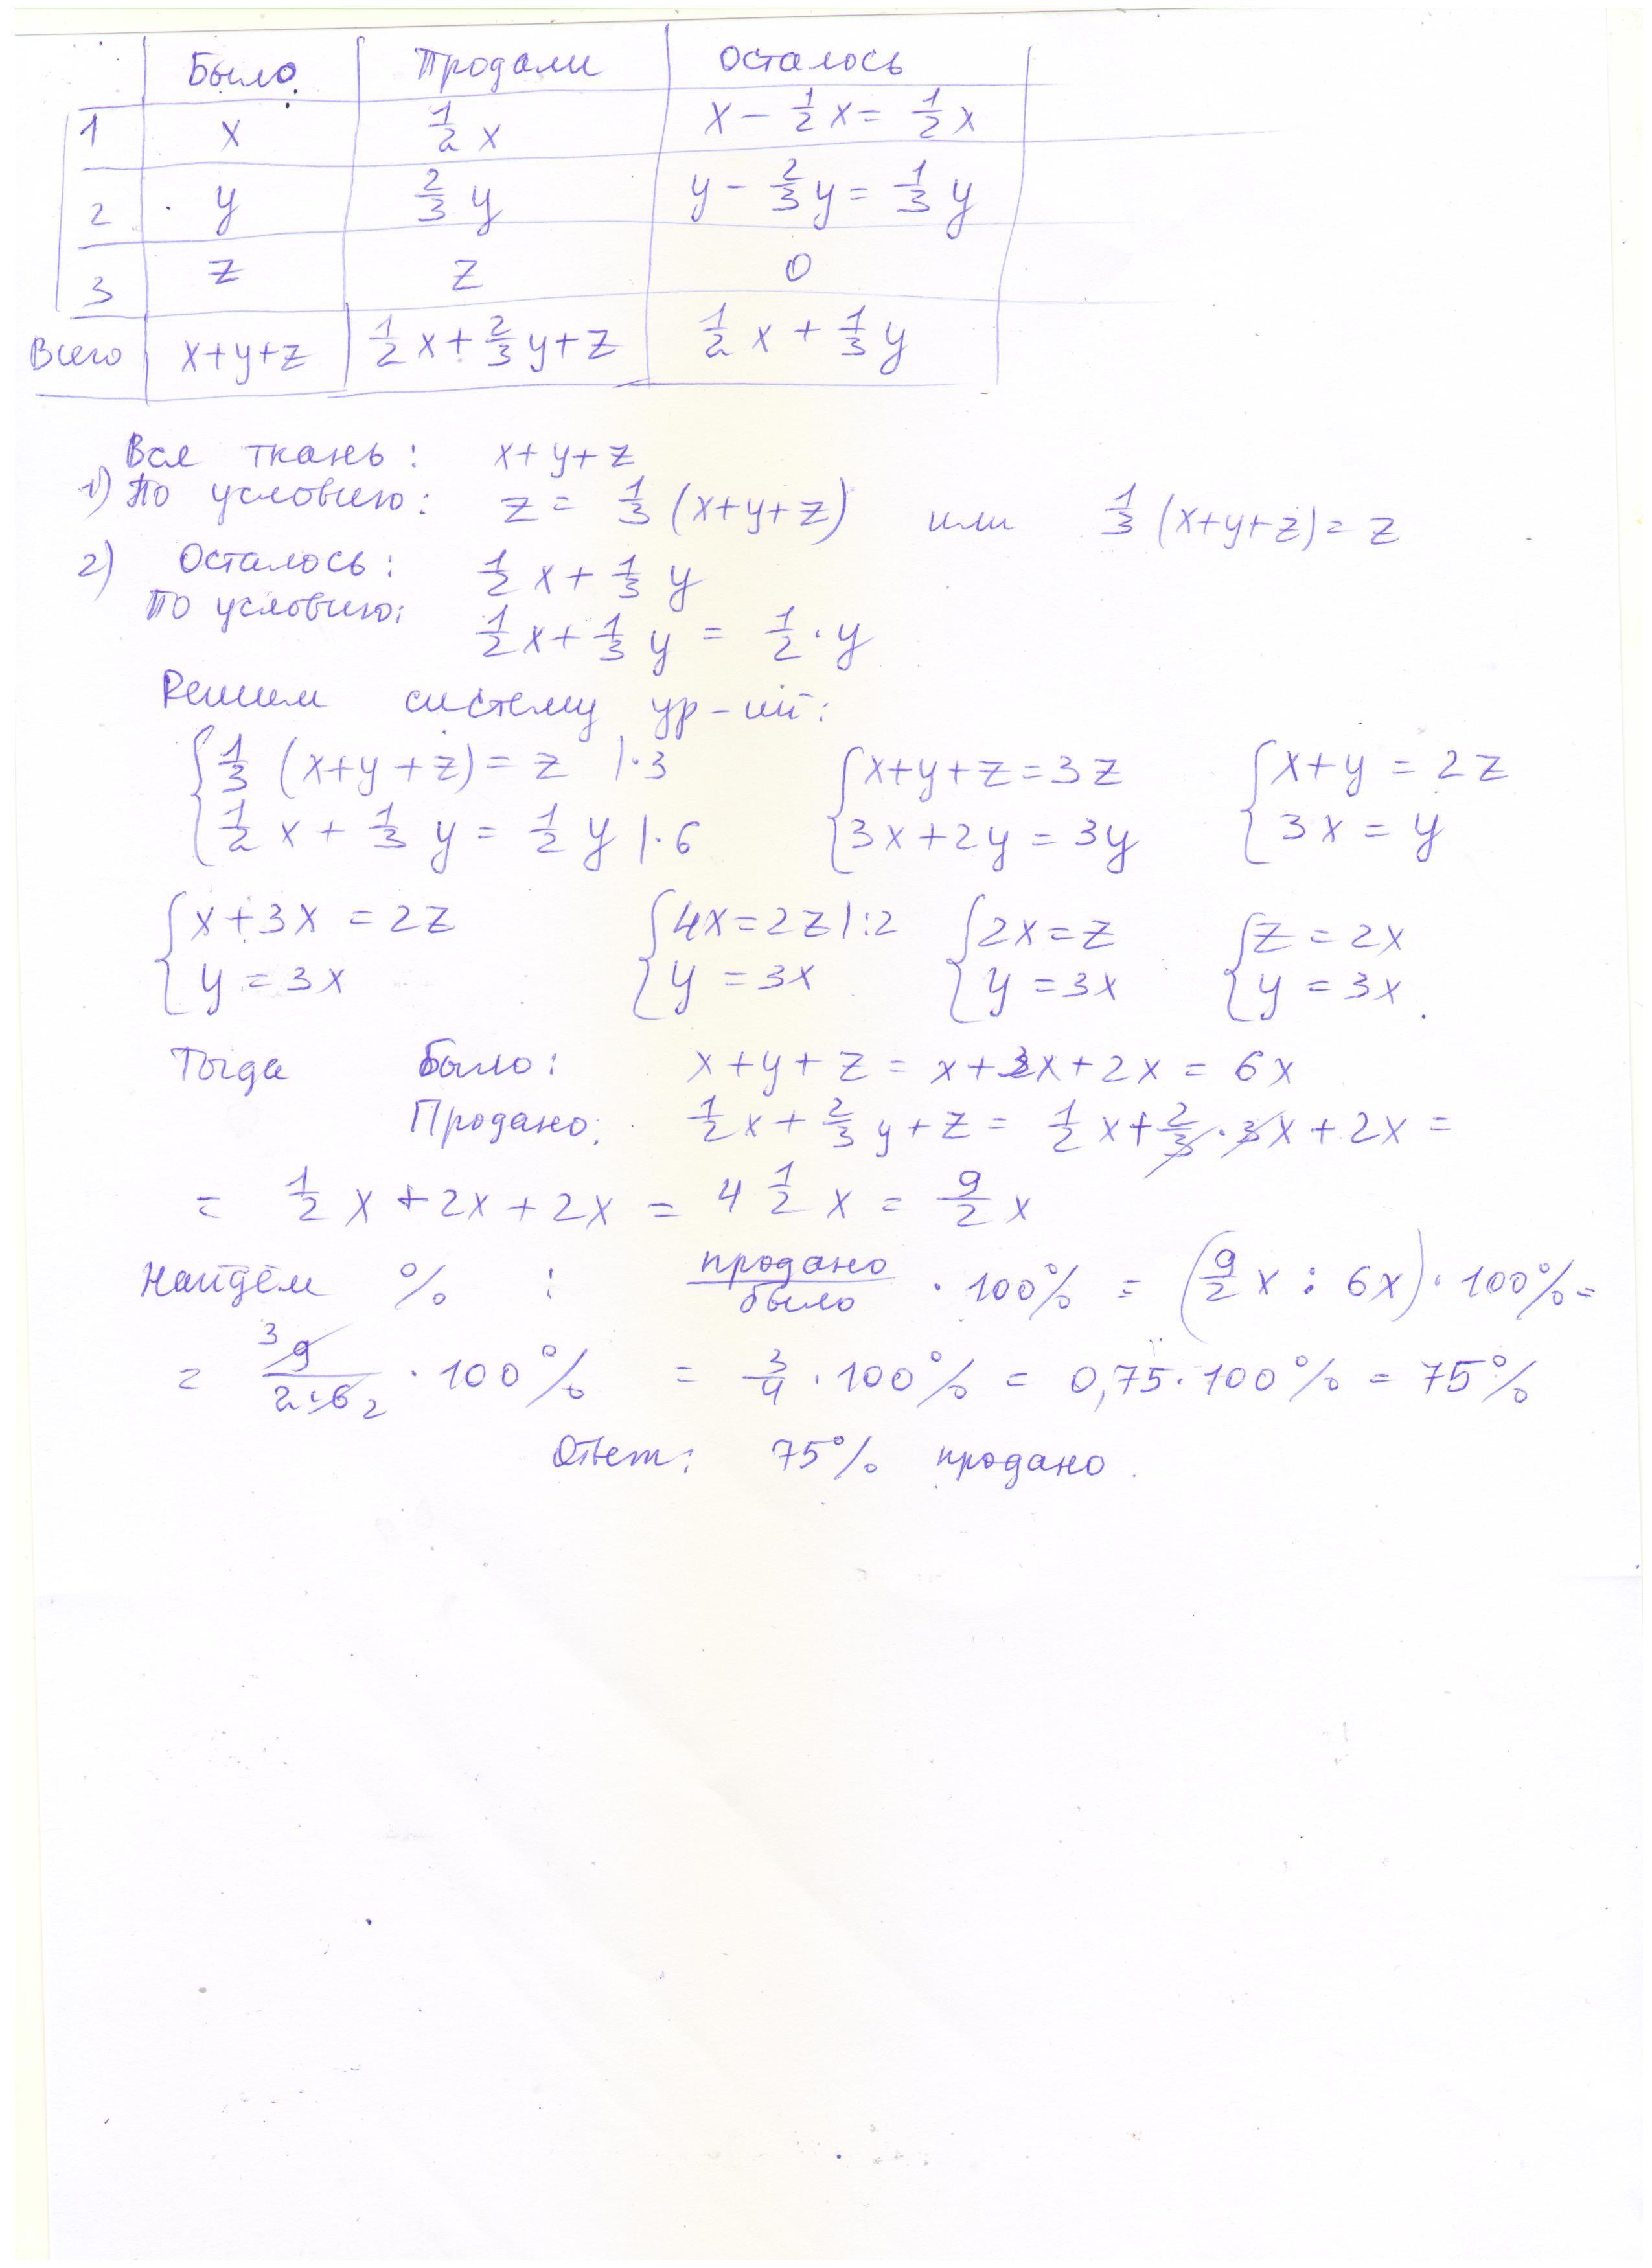 Было Продали Осталось
1 x 1/2 x x - 1/2 x = 1/2 x
2 y 2/3 y y - 2/3 y = 1/3 y
3 z z 0
Всего x+y+z 1/2 x + 2/3 y + z 1/2 x + 1/3 y
Вся ткань: x+y+z
1) По условию: z = 1/3 (x+y+z) или 1/3 (x+y+z) = z
2) Осталось: 1/2 x + 1/3 y
По условию: 1/2 x + 1/3 y = 1/2 · y
Решим систему ур-ий:
{ 1/3 (x+y+z) = z |·3 { x+y+z = 3z { x+y = 2z
{ 1/2 x + 1/3 y = 1/2 y |·6 { 3x+2y = 3y { 3x = y
{ x+3x = 2z { 4x = 2z |:2 { 2x = z { z = 2x
{ y = 3x { y = 3x { y = 3x { y = 3x.
Тогда было: x+y+z = x+3x+2x = 6x
Продано: 1/2 x + 2/3 y + z = 1/2 x + 2/3 · 3x + 2x =
= 1/2 x + 2x + 2x = 4 1/2 x = 9/2 x
Найдём % : продано/было · 100% = (9/2 x : 6x) · 100% =
= 3 9/2·6 2 · 100% = 3/4 · 100% = 0,75 · 100% = 75%
Ответ: 75% продано.